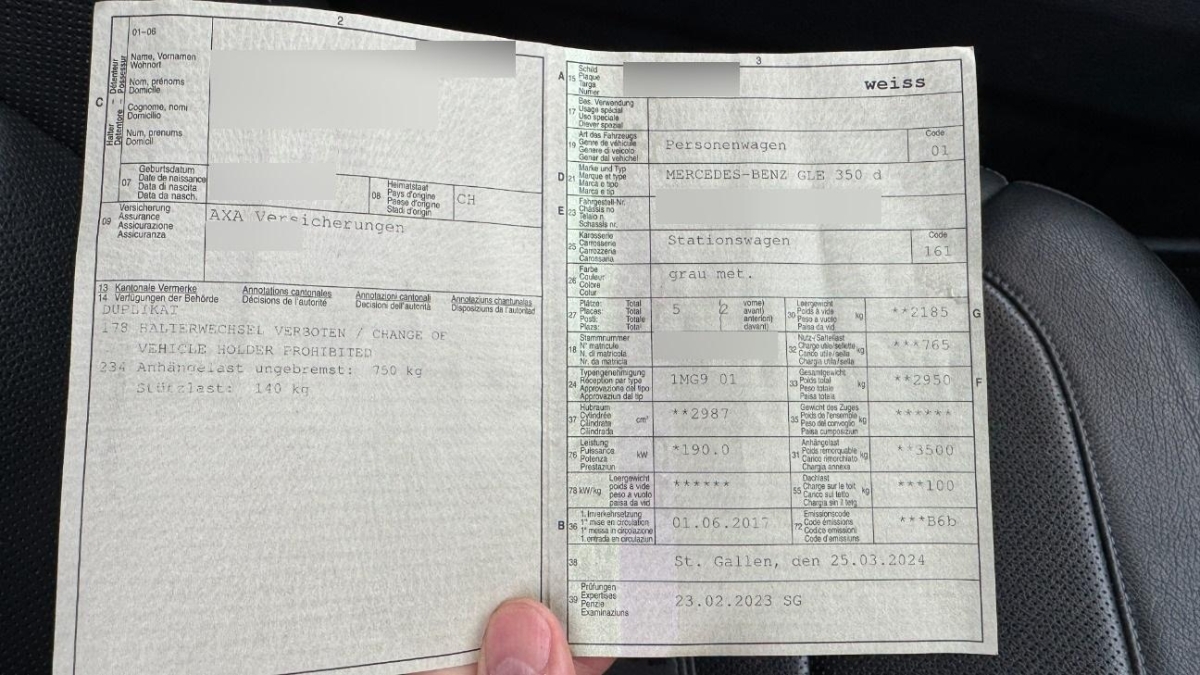 2
01-06
C
Halter Détenteur
Detentore Possessur
Name, Vornamen
Wohnort
Nom, prénoms
Domicile
Cognome, nomi
Domicilio
Num, prenums
Domicil
07
Geburtsdatum
Date de naissance
Data di nascita
Data da nasch.
08
Heimatstaat
Pays d'origine
Paese d'origine
Stadi d'origin
CH
09
Versicherung
Assurance
Assicurazione
Assicuranza
AXA Versicherungen
13 Kantonale Vermerke
14 Verfügungen der Behörde
Annotations cantonales
Décisions de l'autorité
Annotazioni cantonali
Decisioni dell'autorità
Annotaziuns chantunalas
Disposiziuns da l'autoritad
DUPLIKAT
178 HALTERWECHSEL VERBOTEN / CHANGE OF
VEHICLE HOLDER PROHIBITED
234 Anhängelast ungebremst: 750 kg
Stützlast: 140 kg
3
A 15
Schild
Plaque
Targa
Numer
weiss
17
Bes. Verwendung
Usage spécial
Uso speciale
Diever spezial
19
Art des Fahrzeugs
Genre de véhicule
Genere di veicolo
Gener dal vehichel
Personenwagen
Code
01
D 21
Marke und Typ
Marque et type
Marca e tipo
Marca e tip
MERCEDES-BENZ GLE 350 d
E 23
Fahrgestell-Nr.
Châssis no
Telaio n.
Schassis nr.
25
Karosserie
Carrosserie
Carrozzeria
Carossaria
Stationswagen
Code
161
26
Farbe
Couleur
Colore
Colur
grau met.
27
Plätze: Total
Places: Total
Posti: Totale
Plazs: Total
5
2
vorne)
avant)
anteriori)
davant)
30
Leergewicht
Poids à vide
Peso a vuoto
Paisa da vid
kg
**2185
G
18
Stammnummer
N° matricule
N. di matricola
Nr. da matricla
32
Nutz-/Sattellast
Charge utile/sellette
Carico utile/sella
Chargia utila/sella
kg
***765
24
Typengenehmigung
Réception par type
Approvazione del tipo
Approvaziun dal tip
1MG9 01
33
Gesamtgewicht
Poids total
Peso totale
Paisa totala
kg
**2950
F
37
Hubraum
Cylindrée
Cilindrata
Cilindrada
cm³
**2987
35
Gewicht des Zuges
Poids de l'ensemble
Peso del convoglio
Paisa cumposiziun
kg
******
76
Leistung
Puissance
Potenza
Prestaziun
kW
*190.0
31
Anhängelast
Poids remorquable
Carico rimorchiato
Chargia annexa
kg
**3500
78 kW/kg
Leergewicht
poids à vide
peso a vuoto
paisa da vid
******
55
Dachlast
Charge sur le toit
Carico sul tetto
Chargia sin il tetg
kg
***100
B 36
1. Inverkehrsetzung
1re mise en circulation
1a messa in circolazione
1. entrada en circulaziun
01.06.2017
72
Emissionscode
Code émissions
Codice emissioni
Code d'emissiuns
***B6b
38
St. Gallen, den 25.03.2024
39
Prüfungen
Expertises
Perizie
Examinaziuns
23.02.2023 SG